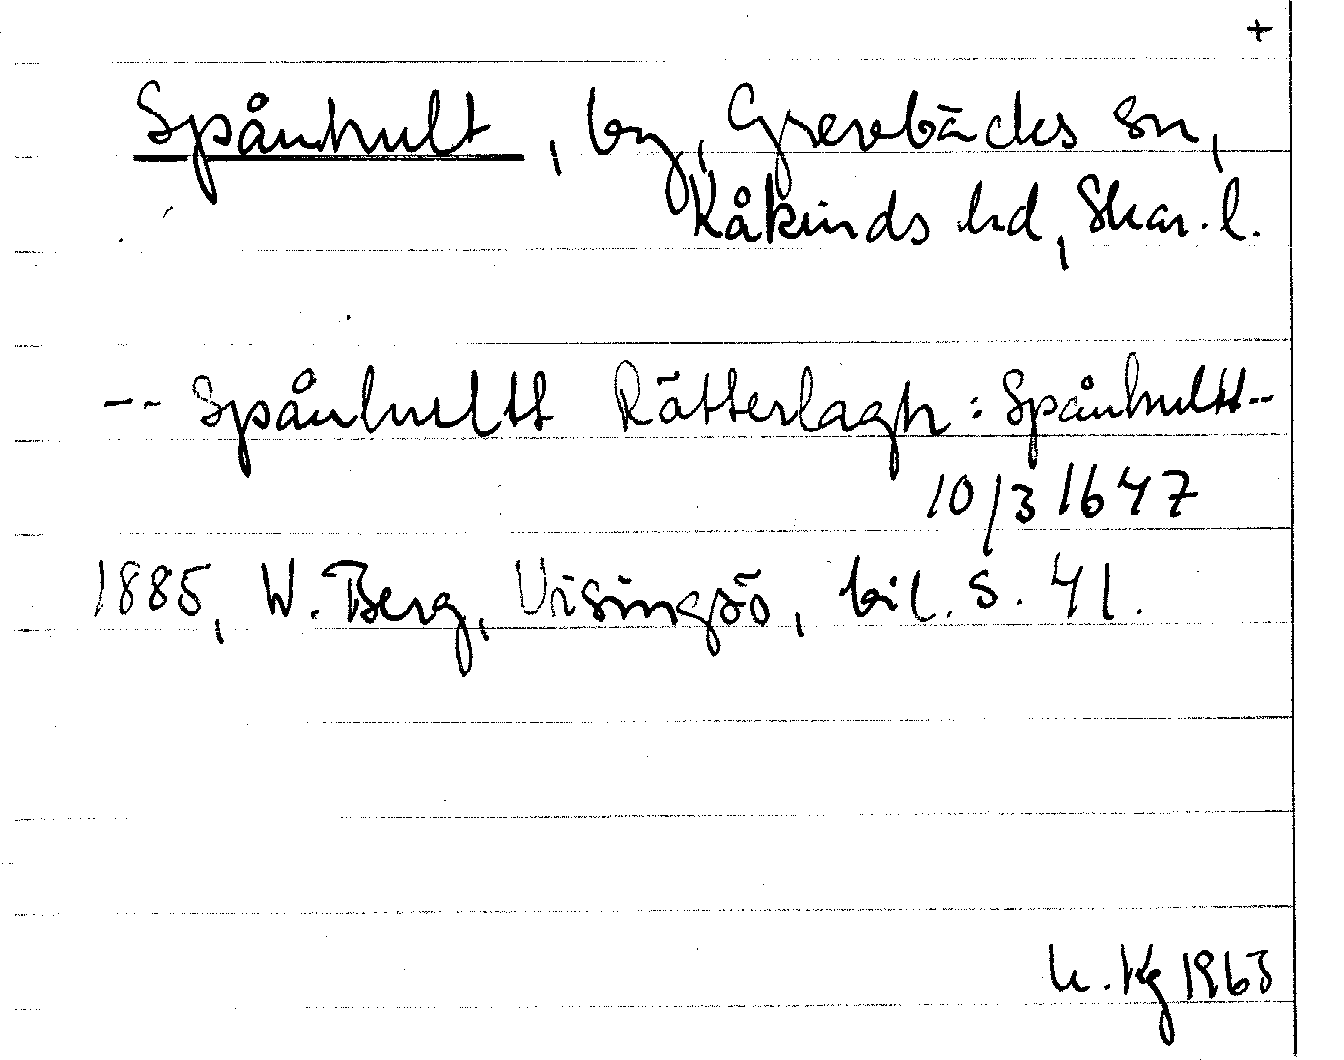 +
Spånhult, by, Grevbäcks sn,
Kåkinds hd, Skar. l.
-- Spånhultt Rätterlagh: Spånhultt--
10/3 1647
1885, W. Berg, Visingsö, bil. s. 41.
1963